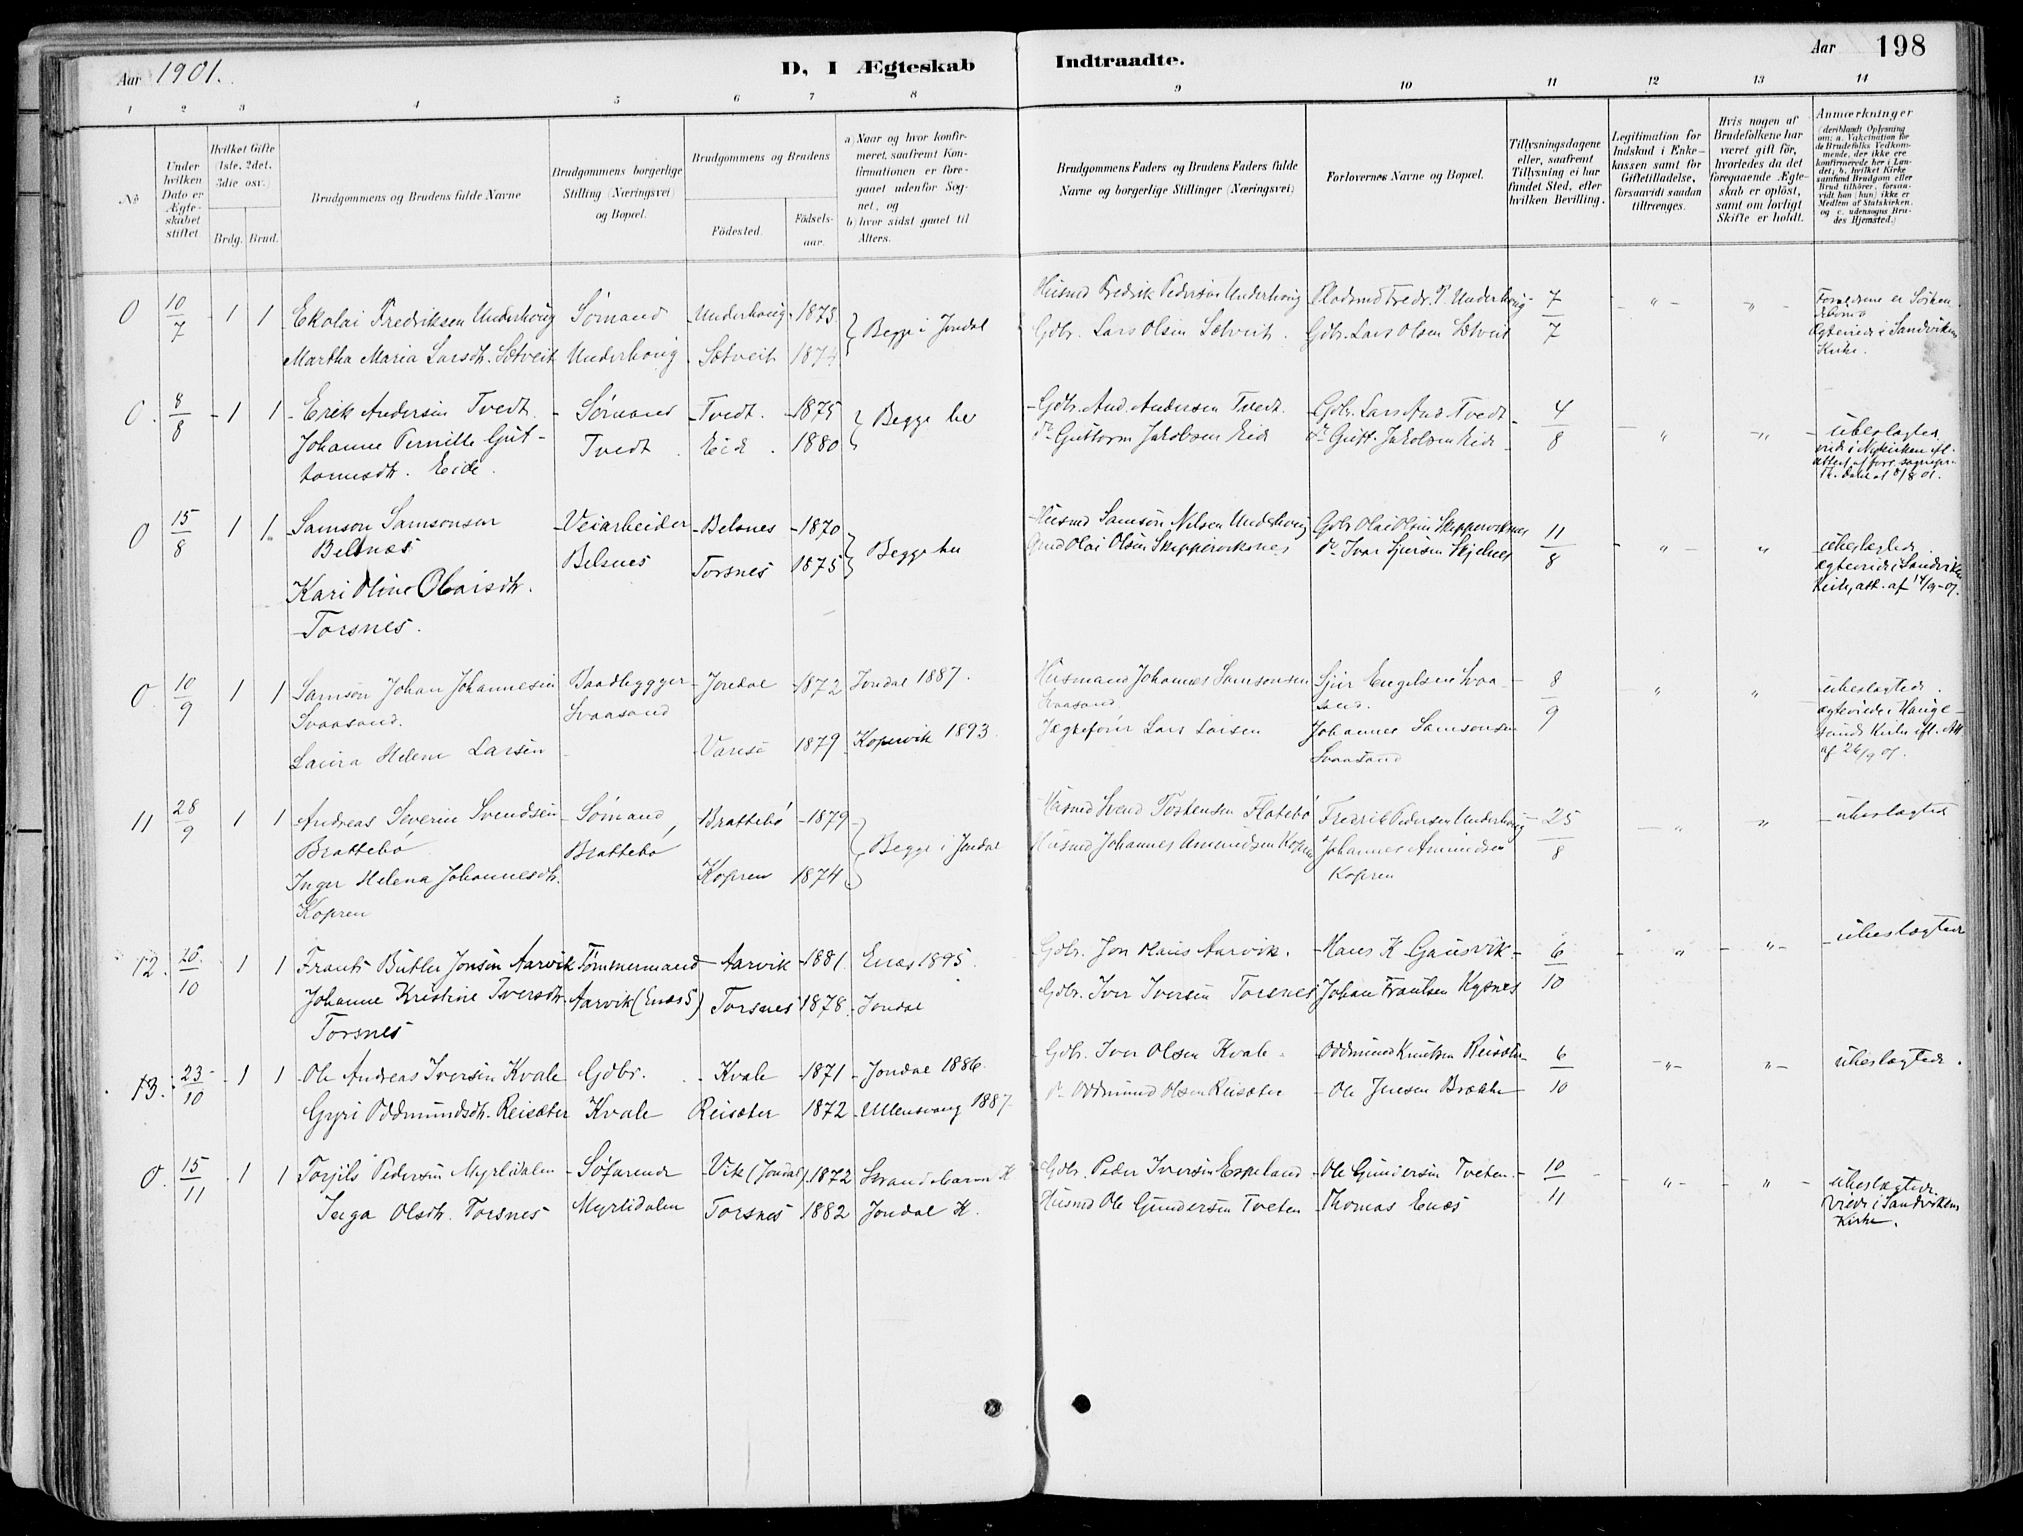 Aar 1901.
D, I Ægteskab Indtraadte.
Aar 198
1 2 3 4 5 6 7 8 9 10 11 12 13 14
No
Under hvilken Dato er Ægteskabet stiftet
Hvilket Gifte (1ste, 2det, 3die osv.)
Brdg. Brud.
Brudgommens og Brudens fulde Navne
Brudgommens borgerlige Stilling (Næringsvei) og Bopæl.
Brudgommens og Brudens
Fødested.
Fødselsaar.
a) Naar og hvor konfirmeret, saafremt Konfirmationen er foregaaet udenfor Sognet, og
b) hvor sidst gaaet til Alters.
Brudgommens Faders og Brudens Faders fulde Navne og borgerlige Stillinger (Næringsvei)
Forlovernes Navne og Bopæl.
Tillysningsdagene eller, saafremt Tillysning ei har fundet Sted, efter hvilken Bevilling.
Legitimation for Indskud i Enkekassen samt for Giftetilladelse, forsaavidt saadan tiltrænges.
Hvis nogen af Brudefolkene har været gift før, hvorledes da det foregaaende Ægteskab er opløst, samt om lovligt Skifte er holdt.
Anmærkninger
(deriblandt Oplysning om: a. Vakcination for de Brudefolks Vedkommende, der ikke ere konfirmerede her i Landet; b. hvilket Kirkesamfund Brudgom eller Brud tilhører, forsaavidt han (hun) ikke er Medlem af Statskirken, og c. udensogns Brudes Hjemsted.)
0 10/7 1 1 Ekolai Fredriksen Underhoug Sømand Underhoug 1873 Begge i Jondal Husmd Fredrik Pedersen Underhoug Pladsmd Fredr. P. Underhoug 7/7 " "
Martha Maria Larsdtr. Sætveit Underhoug Sætveit 1874 Gdbr. Lars Olsen Sætveit. Gdbr. Lars Olsen Sætveit
Ægteviede i Sandvikens Kirke.
0. 8/8 1 1 Erik Andersen Tvedt. Sømand Tvedt. 1875 Begge her Gdbr. And. Andersen Tvedt. Gdbr. Lars And. Tvedt 4/8 " " ubeslægtede
Johanne Pernille Guttormsdtr. Eide. Tvedt Eid. 1880 do Guttorm Jakobsen Eide do Gutt. Jakobsen Eide
viede i Nykirken ifl.
0 15/8 1 1 Samson Samsonsen Belsnæs Veiarbeider Belsnes 1870 Begge her Husmd Samson Nilsen Underhoug Gdbr. Olai Olsen Skippervoksnes 11/8 " " ubeslægtede
Kari Oline Olaisdtr. Torsnes. Belsnes Torsnes 1875 Olai Olsen Skippervoksnes do Ivar Sjursen Skjelnes
ægteviede i Sandviken Kirke, att. af 14/9-01.
0. 10/9 1 1 Samson Johan Johannesen Svaasand. Baadbygger Svaasand Jondal 1872 Jondal 1887. Husmand Johannes Samsonsen Svaasand Sjur Engelsen Svaasand. 8/9 " " ubeslægtede.
Laura Helene Larsen Vansø 1879 Kopervik 1893. Jægtefører Lars Larsen Johannes Samsonsen Svaasand
ægteviede i Haugesunds Kirke ifl. Att. af 26/9 01.
11 28/9 1 1 Andreas Severin Svendsen Brattebø Sømand, Brattebø Brattebø 1879 Begge i Jondal Husmd Svend Torstensen Flatebø Fredrik Pedersen Underhoug 25/8 " " ubeslægtede
Inger Helena Johannesdtr. Kopren Kopren 1874 Husmd Johannes Amundsen Kopren Johannes Amundsen Kopren
12. 20./10 1 1 Frants Butler Jonsen Aarvik Tømmermand Aarvik 1881. Enæs 1895. Gdbr. Jon Olaus Aarvik. Hans K Gausvik 6/10 " " ubeslægtede
Johanne Kristine Iversdtr. Torsnes Aarvik (Enæs S) Torsnes 1878. Jondal Gdbr. Iver Iversen Torsnes Johan Frantsen Kysnes
13. 23/10 1 1 Ole Andreas Iversen Kvale Gdbr. Kvale 1871 Jondal 1886. Gdbr. Iver Olsen Kvale. Oddmund Knutsen Reisæter 6/10 " " ubeslægtede.
Gyri Oddmundsdtr. Reisæter Kvale Reisæter 1872 Ullensvang 1887. do Oddmund Olsen Reisæter Ole Jensen Brække
0. 15/11 1 1 Torjils Pedersen Myrlidalen Søfarende Vik (Jondal). 1872 Strandebarm K Gdbr. Peder Iversen Espeland Ole Gundersen Tveten 10/11 " " ubeslægtede.
Inga Olsdtr. Torsnes Myrlidalen Torsnes 1882 Jondal K. Husmd Ole Gundersen Tveten Thomas Enæs
viede i Sandvikens Kirke.